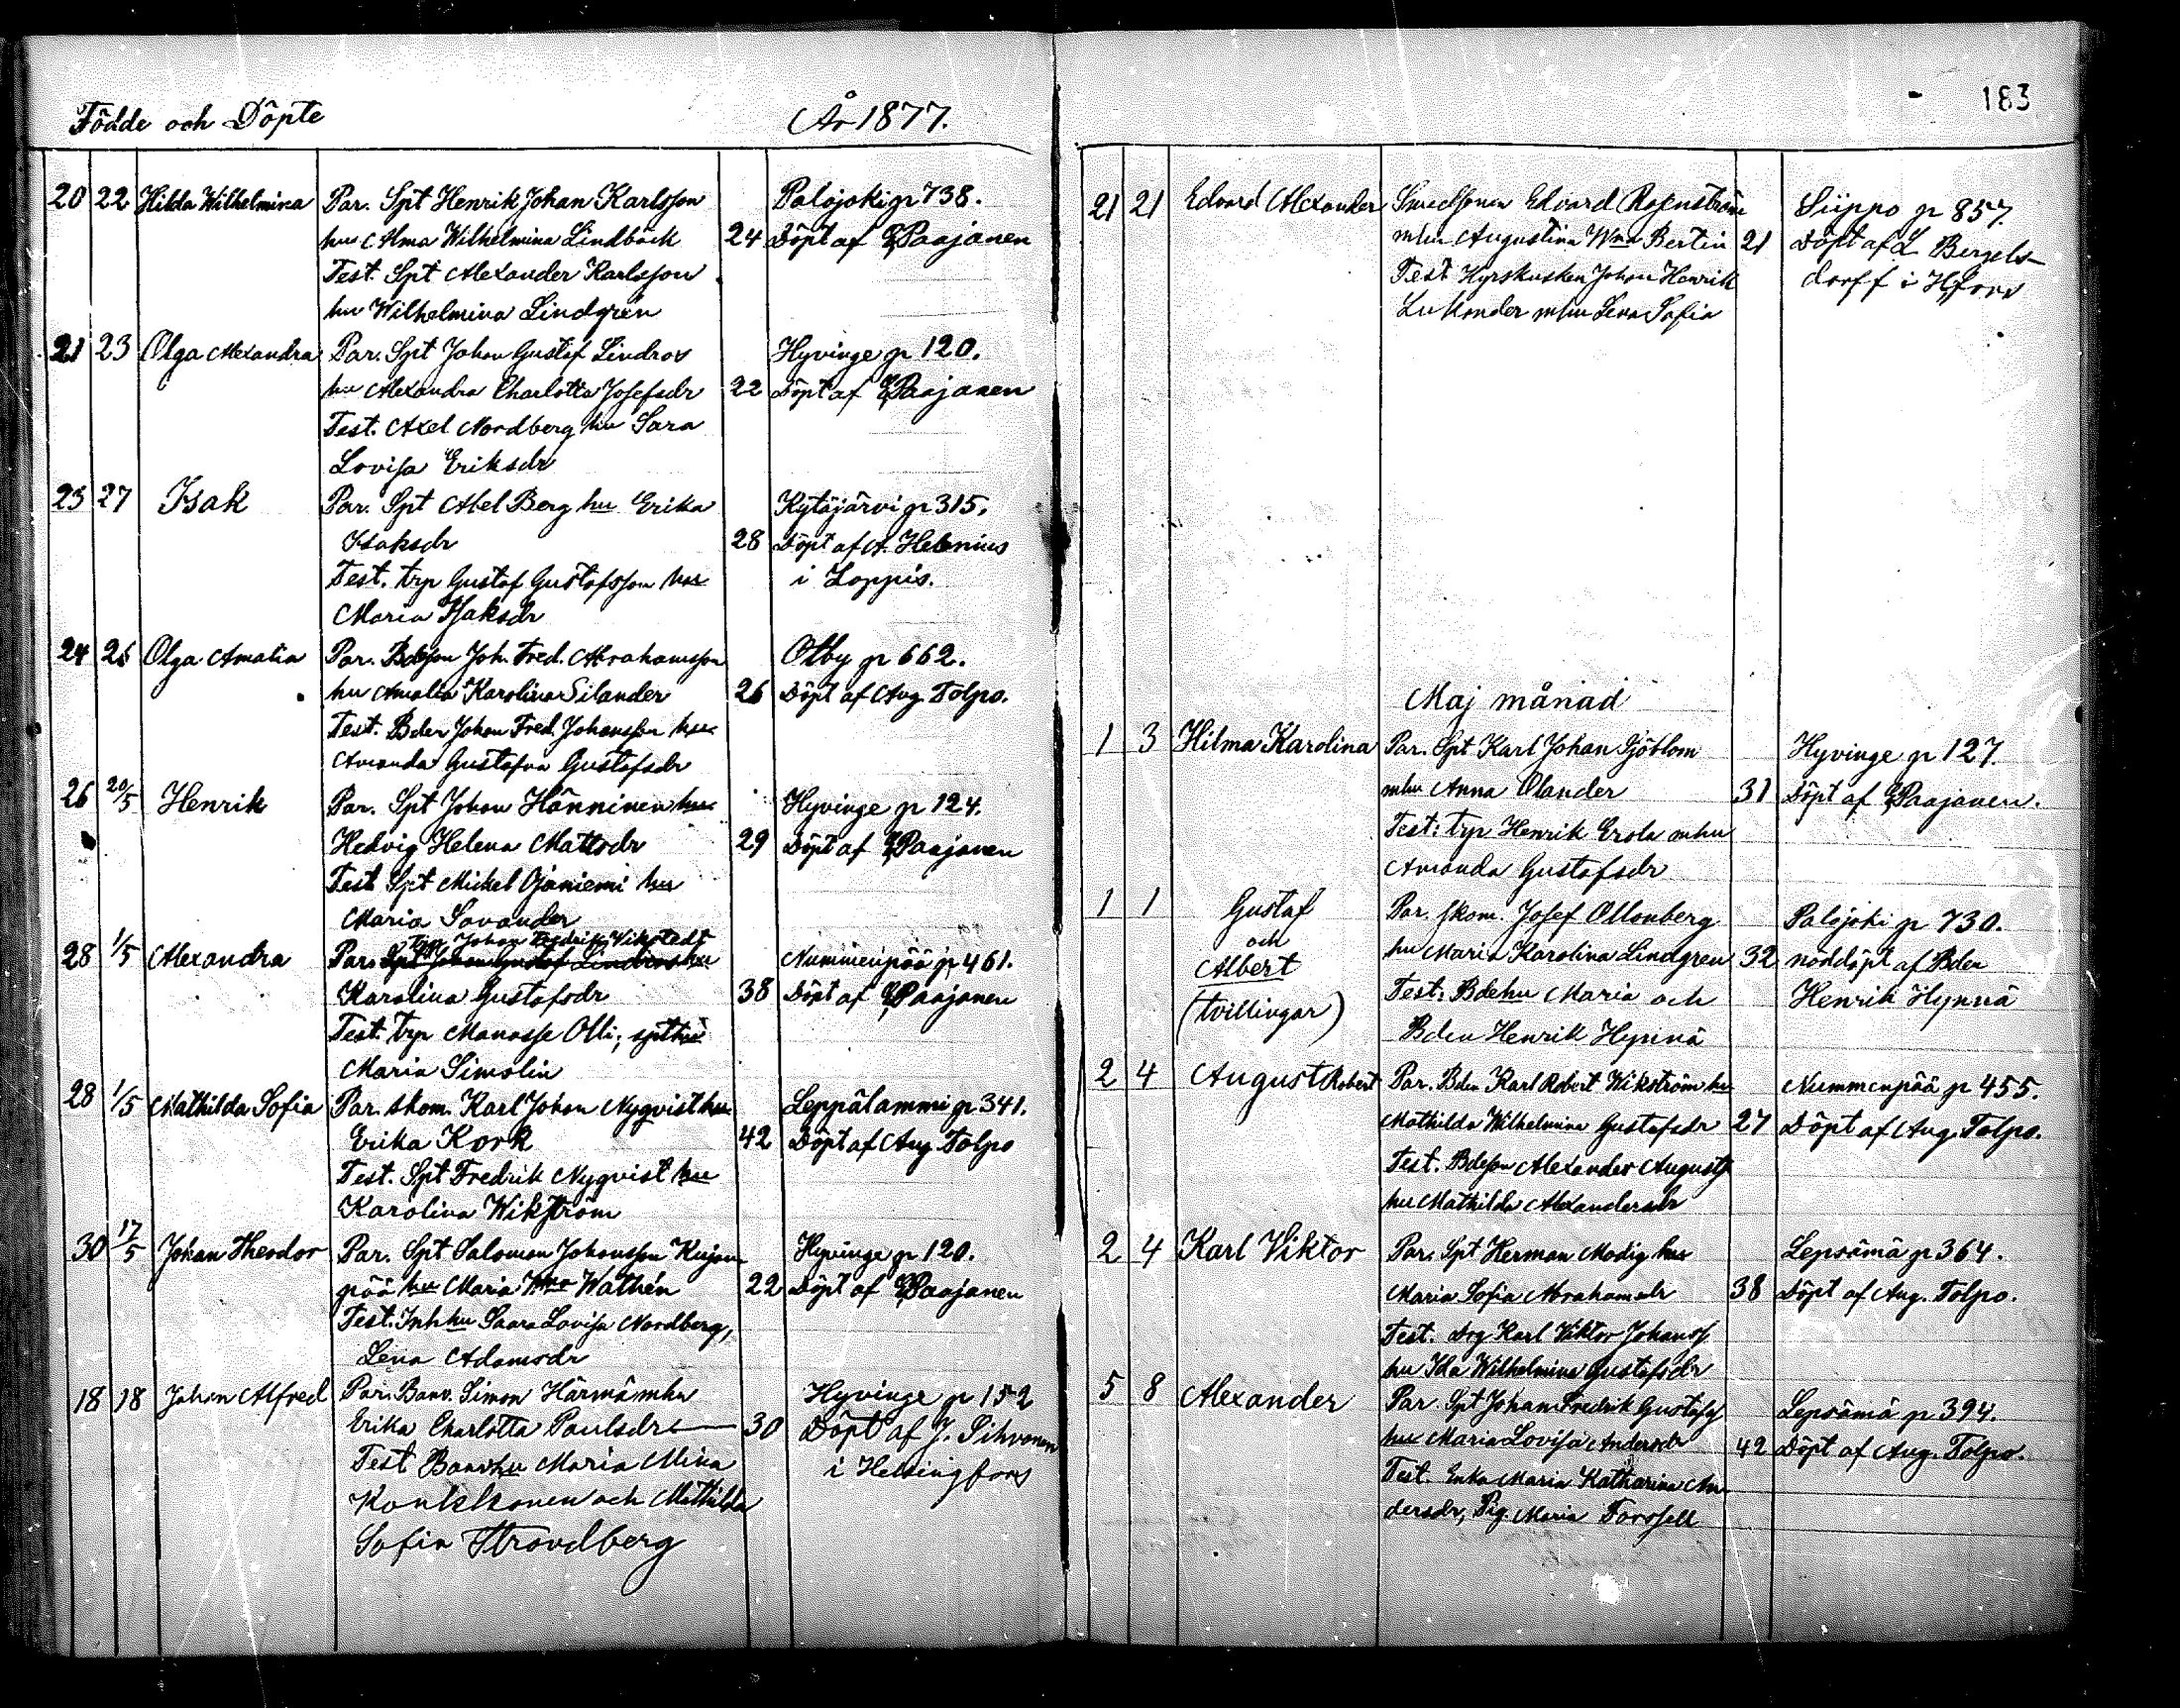 Födde och Döpte
År 1877.
20 22 Hilda Wilhelmina Par. Spt Henrik Johan Karlsson Palojoki p 738.
hu Alma Wilhelmina Lindbäck 24 Döpt af Paajanen
Test. Spt Alexander Karlsson
hu Wilhelmina Lindgren
21 23 Olga Alexandra Par. Spt Johan Gustaf Lindros Hyvinge p 120.
hu Alexandra Charlotta Josefsdr 22 Döpt af Paajanen
Test. Axel Nordberg hu Sara
Lovisa Eriksdr
25 27 Isak Par. Spt Abel Berg hu Erika Kytäjärvi p 315.
Isaksdr 28 Döpt af A. Helenius
Test. trp Gustaf Gustafsson hu i Loppis.
Maria Isaksdr
24 26 Olga Amalia Par. Bdeson Joh. Fred. Abrahamsson Otby p 662.
hu Amalia Karolina Silander 26 Döpt af Aug. Tolpo.
Test. Bden Johan Fred. Johansson hu
Amanda Gustafva Gustafsdr
26 20/5 Henrik Par. Spt Johan Hänninen hu Hyvinge p 124.
Hedvig Helena Mattsdr 29 Döpt af Paajanen
Test Spt Mickel Ojaniemi hu
Maria Savander
trp Johan Fredrik Wikstedt
28 1/5 Alexandra Par. Spt Johan Gustaf Lindros hu Nummenpää p 461.
Karolina Gustafsdr 38 Döpt af Paajanen
Test. trp Manasse Olli; spthu
Maria Simolin
28 1/5 Mathilda Sofia Par. skom. Karl Johan Nyqvist hu Leppälammi p 341.
Erika Kork 42 Döpt af Aug Tolpo
Test. Spt Fredrik Nyqvist hu
Karolina Wikström
30 17/5 Johan Theodor Par. Spt Salomon Johansson Kujan Hyvinge p 120.
pää hu Maria Wma Wathén 22 Döpt af Paajanen
Test. Inhhu Saara Lovisa Nordberg,
Lena Adamsdr
18 18 Johan Alfred Par. Banv. Simon Härmä mhu Hyvinge p 152
Erika Charlotta Paulsdr 30 Döpt af J. Sihvonen
Test Banvhu Maria Mina i Helsingfors
och Mathilda
Sofia Strandberg
183
21 21 Edvard Alexander Smedsonen Edvard Rosenström Siippo p 857
mhu Augustina Wma Bertin 21 Döpt af L Bergels-
Test Hyrskusken Johan Henrik dorff i Hfors
Lukander mhu Lena Sofia
Maj månad
1 3 Hilma Karolina Par. Spt Karl Johan Sjöblom Hyvinge p 127.
mhu Anna Olander 31 Döpt af Paajanen.
Test: trp Henrik Erola mhu
Amanda Gustafsdr
1 1 Gustaf Par. skom. Josef Ollonberg Palojoki p 730.
och
Albert hu Maria Karolina Lindgren 32 nöddöpt af Bden
(tvillingar) Test: Bdehu Maria och Henrik Hynnä
Bden Henrik Hynnä
2 4 August Robert Par. Bden Karl Robert Wikström hu Nummenpää p 455.
Mathilda Wilhelmina Gustafsdr 27 Döpt af Aug. Tolpo.
Test. Bdeson Alexander Augustss
hu Mathilda Alexandersdr
2 4 Karl Viktor Par. Spt Herman Modig hu Lepsämä p 364.
Maria Sofia Abrahamsdr 38 Döpt af Aug. Tolpo.
Test. Drg Karl Viktor Johanss
hu Ida Wilhelmina Gustafsdr
5 8 Alexander Par. Spt Johan Fredrik Gustafss Lepsämä p 394.
hu Maria Lovisa Andersdr 42 Döpt af Aug. Tolpo.
Test. Enka Maria Katharina An
dersdr, Pig. Maria Forssell